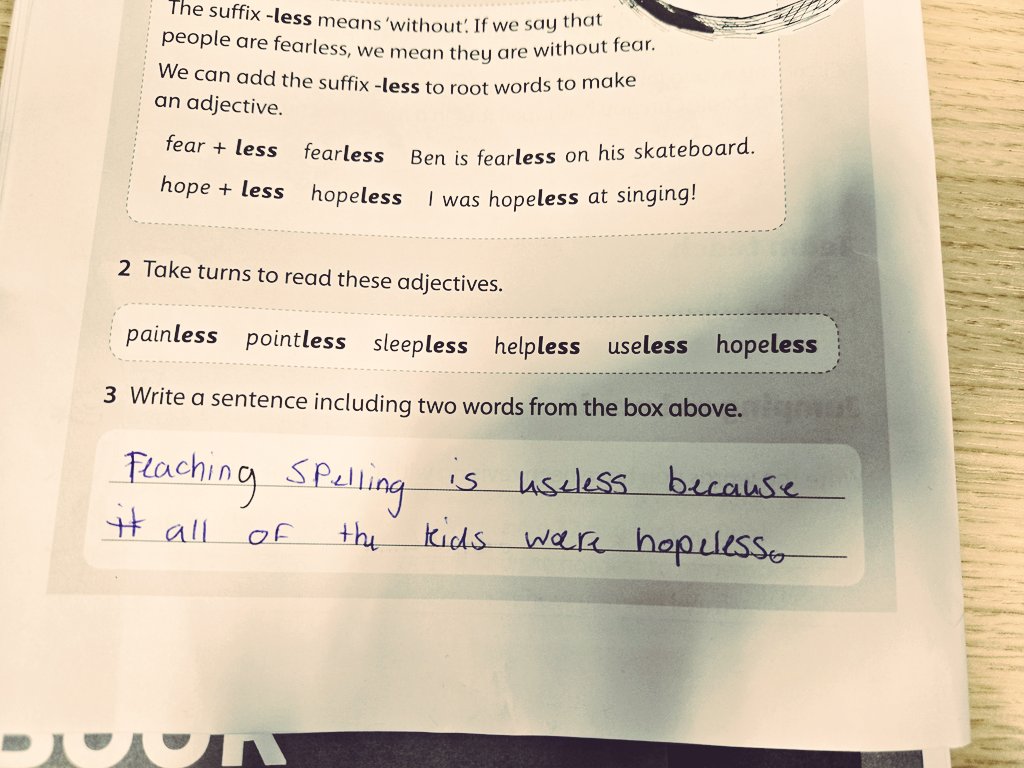 The suffix -less means 'without'. If we say that
people are fearless, we mean they are without fear.
We can add the suffix -less to root words to make
an adjective.
fear + less fearless Ben is fearless on his skateboard.
hope + less hopeless I was hopeless at singing!
2 Take turns to read these adjectives.
painless pointless sleepless helpless useless hopeless
3 Write a sentence including two words from the box above.
Teaching spelling is useless because
it all of the kids were hopeless.
BOOK